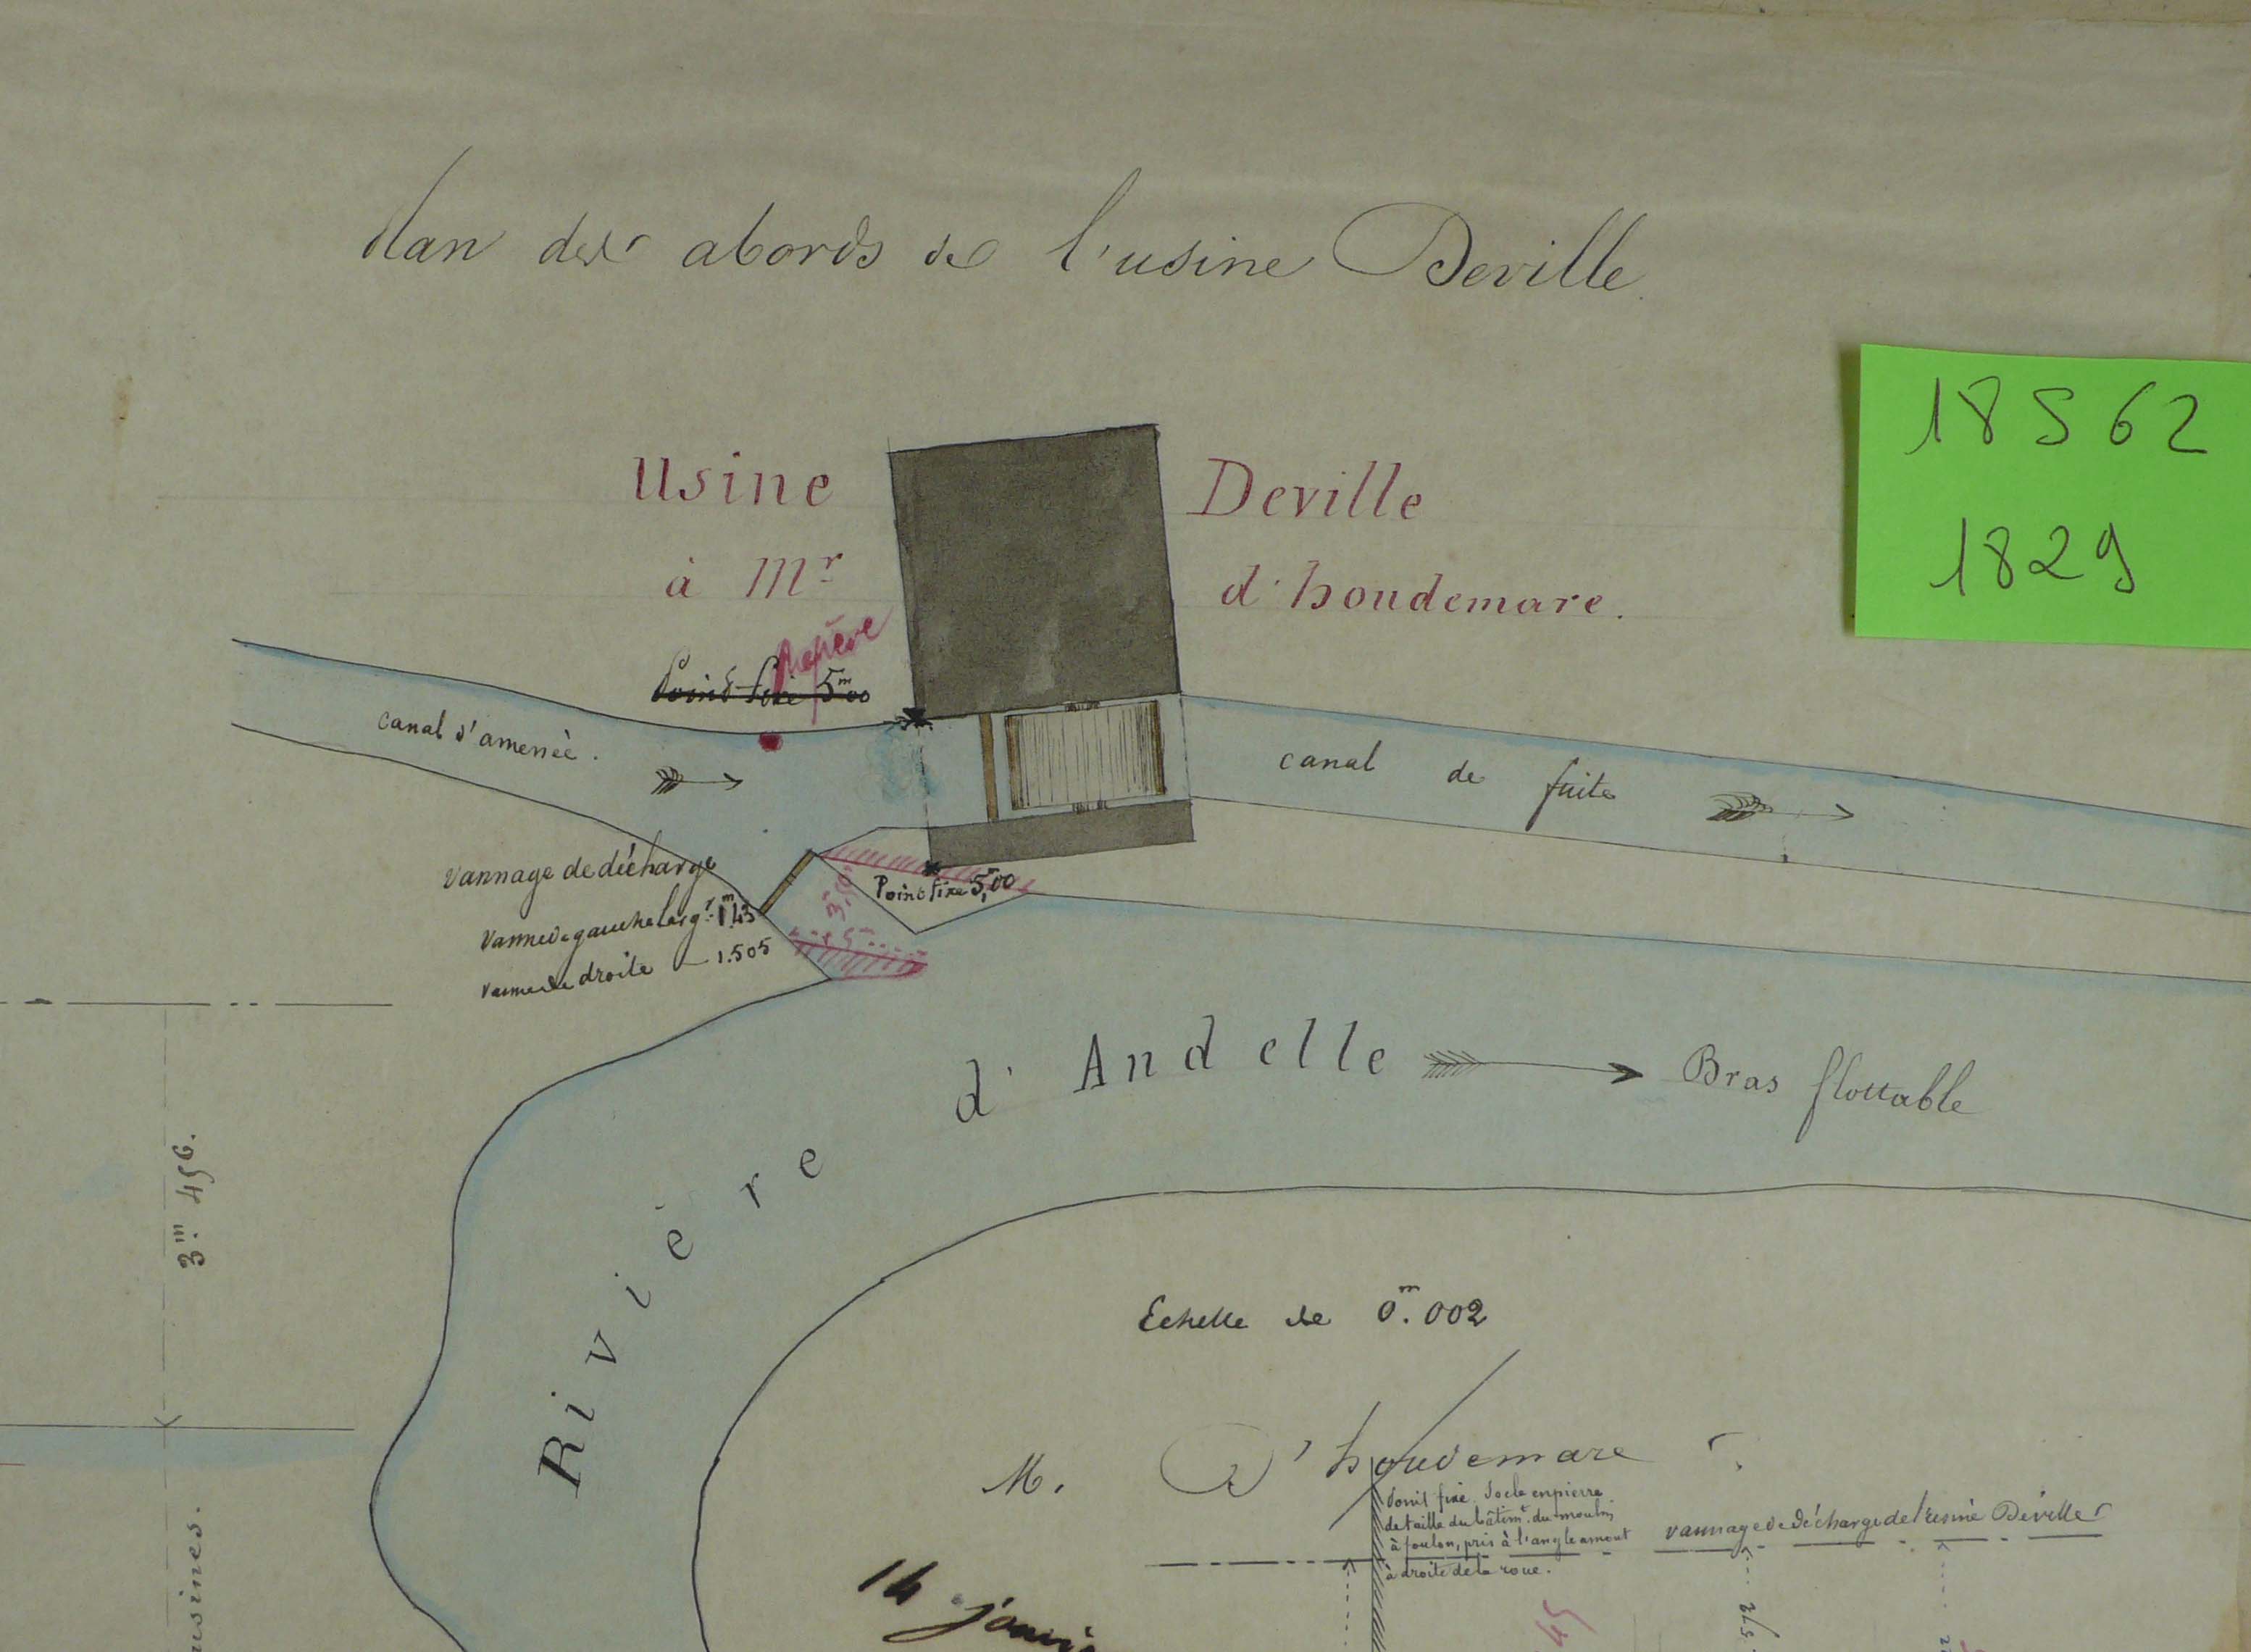 Plan des abords de l'usine Deville.
18 S 62
1829
Usine Deville
à Mr d'houdemare.
Repère
Point fixe 5m00
canal d'amenée.
canal de fuite
vannage de décharge
vanne de gauche largr 1m,43
vanne de droite — 1.505
3m,50
Point fixe 5m,00
5m
Rivière d'Andelle
Bras flottable
3m. 456.
usines.
Echelle de 0m.002
M. D'houdemare
Point fixe. Socle en pierre
de taille du bâtimt. du moulin
à foulon, pris à l'angle amont
à droite de la roue.
vannage de décharge de l'usine Déville
14 janvi
45